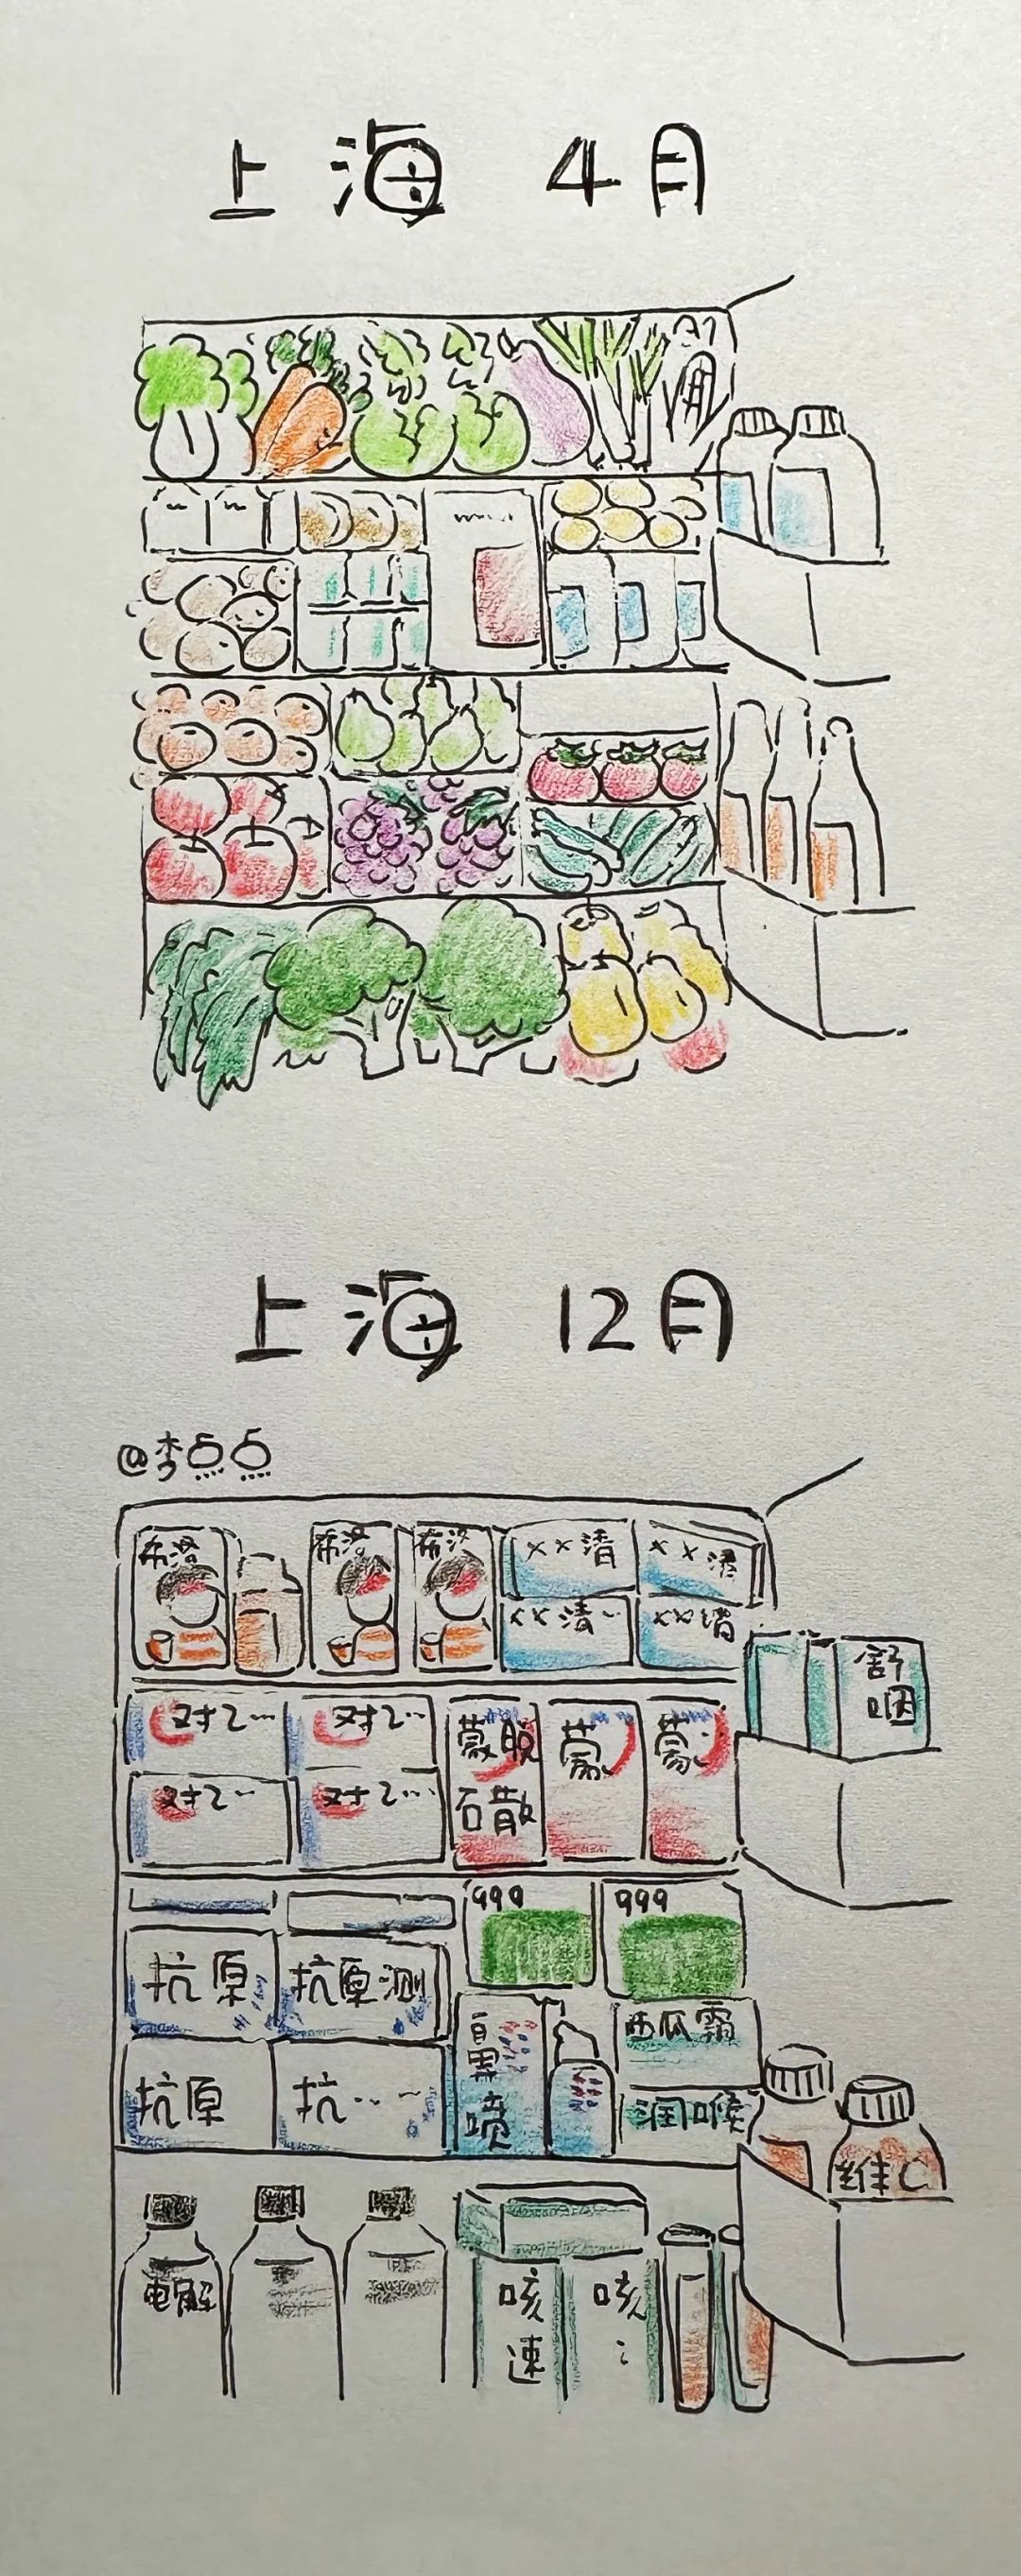 上海 4月
上海 12月
@李点点
希洛
希洛
希洛
××清
××清
××清
××清
舒
咽
对乙…
对乙…
蒙脱
石散
蒙
蒙
对乙…
对乙…
999
999
抗原
抗原测
鼻
喷
西瓜霜
润喉
抗原
抗…
维C
电解
咳
速
咳